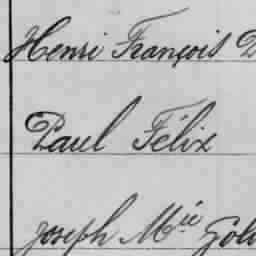 Henri François
Paul Félix
Joseph Mie